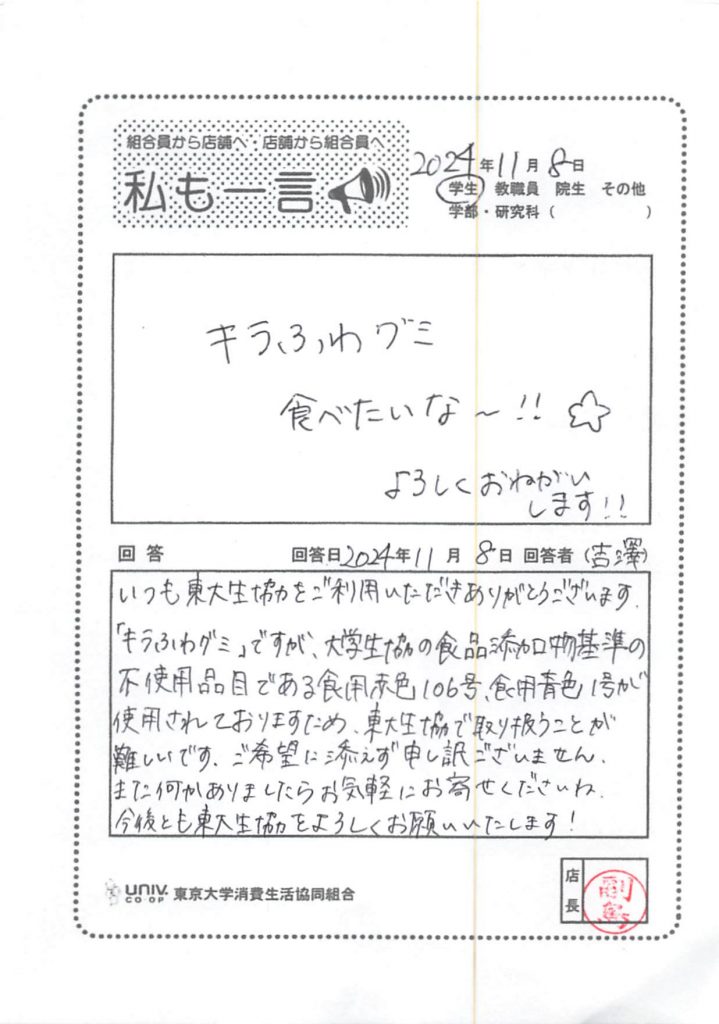 組合員から店舗へ・店舗から組合員へ
私も一言
2024年11月8日
学生 教職員 院生 その他
学部・研究科（　　　　）
キラふわグミ
食べたいな〜!! ☆
よろしくおねがい
します!!
回答 回答日2024年11月8日 回答者（吉澤）
いつも東大生協をご利用いただきありがとうございます。
「キラふわグミ」ですが、大学生協の食品添加物基準の
不使用品目である食用赤色106号、食用青色1号が
使用されておりますため、東大生協で取り扱うことが
難しいです。ご希望に添えず申し訳ございません。
また何かありましたらお気軽にお寄せくださいね。
今後とも東大生協をよろしくお願いいたします!
UNIV. CO-OP 東京大学消費生活協同組合
店長